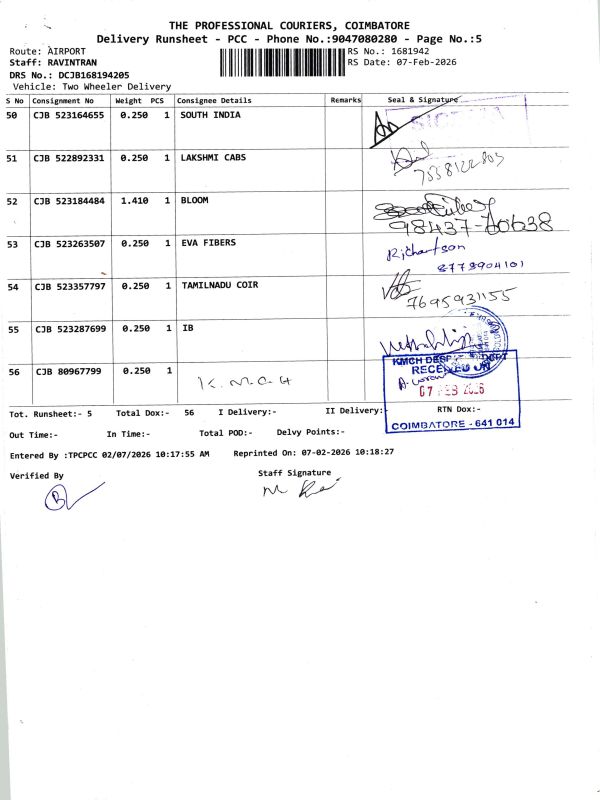 THE PROFESSIONAL COURIERS, COIMBATORE
Delivery Runsheet - PCC - Phone No.:9047080280 - Page No.:5
Route: AIRPORT
RS No.: 1681942
Staff: RAVINTRAN
RS Date: 07-Feb-2026
DRS No.: DCJB168194205
Vehicle: Two Wheeler Delivery
S No Consignment No Weight PCS Consignee Details Remarks Seal & Signature
50 CJB 523164655 0.250 1 SOUTH INDIA
51 CJB 522892331 0.250 1 LAKSHMI CABS
52 CJB 523184484 1.410 1 BLOOM
98437-70638
53 CJB 523263507 0.250 1 EVA FIBERS Richardson
8778904101
54 CJB 523357797 0.250 1 TAMILNADU COIR
7695931155
55 CJB 523287699 0.250 1 IB
56 CJB 80967799 0.250 1 K.M.C.H
KMCH
RECEIVED ON
07 FEB 2026
COIMBATORE - 641 014
Tot. Runsheet:- 5 Total Dox:- 56 I Delivery:- II Delivery:- RTN Dox:-
Out Time:- In Time:- Total POD:- Delvy Points:-
Entered By :TPCPCC 02/07/2026 10:17:55 AM Reprinted On: 07-02-2026 10:18:27
Verified By Staff Signature